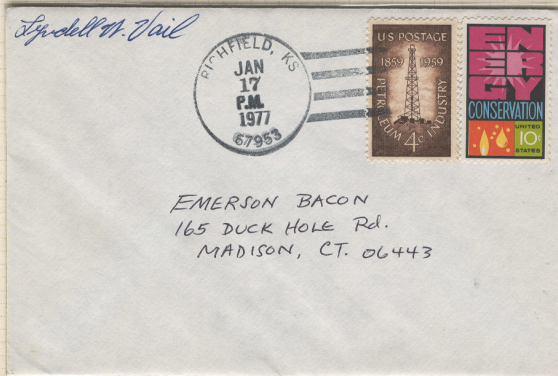 Lyndell N. Vail
RICHFIELD, KS
JAN
17
P.M.
1977
67953
U.S. POSTAGE
1859 1959
PETROLEUM INDUSTRY
4¢
ENERGY
CONSERVATION
UNITED
10¢
STATES
EMERSON BACON
165 DUCK HOLE Rd.
MADISON, CT. 06443